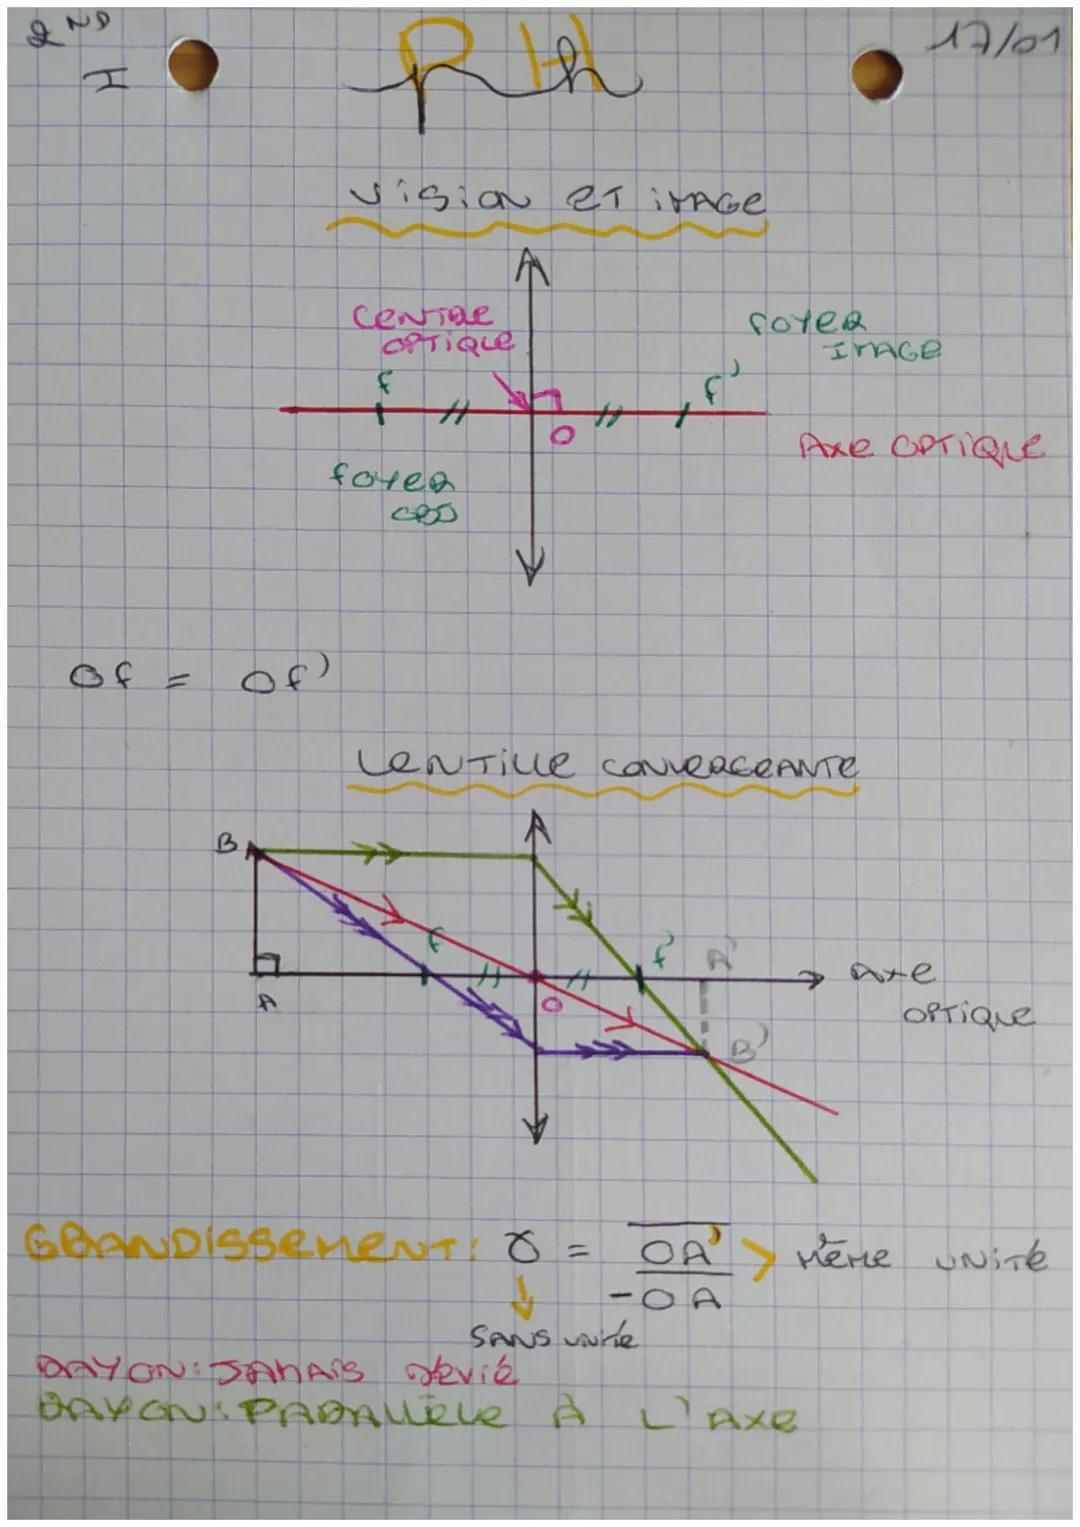 2ND
I
PH
17/01
Vision ET iMAGE
CENTRE
OPTiQUE
FOYER
IMAGE
f
f'
O
AXE OPTiQUE
FOYER
OBJ
Of = Of'
LENTILLE CONVERGEANTE
B
f
f'
A'
AXE
OPTiQUE
A
O
B'
GRANDiSSEMENT: γ = OA' > MÊME UNiTÉ
-OA
SANS UNiTÉ
RAYON: JAMAiS DÉViÉ
RAYON: PARALLÈLE À L'AXE